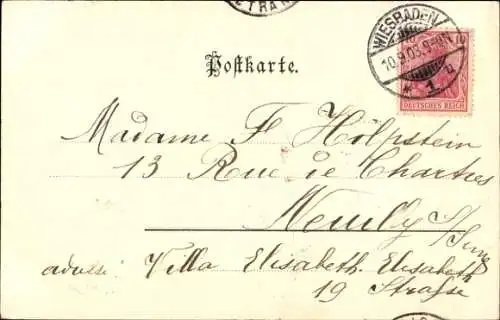 ETRAN
WIESBADEN
10.9.03.9-10N
* 1 a
DEUTSCHES REICH
Postkarte.
Madame F Holpstein
13 Rue de Chartres
Neuilly S/Seine
adresse: Villa Elisabeth. Elisabeth
19 Strasse